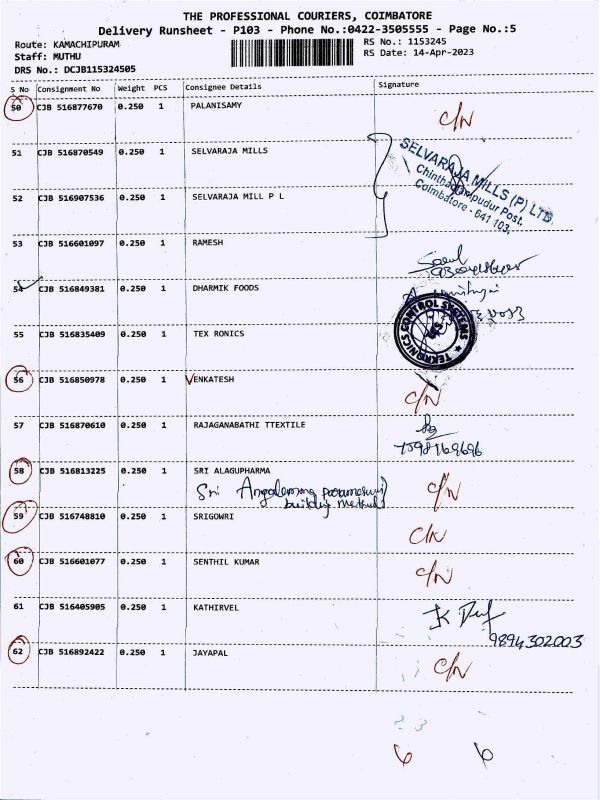 THE PROFESSIONAL COURIERS, COIMBATORE
Delivery Runsheet - P103 - Phone No.:0422-3505555 - Page No.:5
Route: KAMACHIPURAM
RS No.: 1153245
Staff: MUTHU
RS Date: 14-Apr-2023
DRS No.: DCJB115324505
S No Consignment No Weight PCS Consignee Details Signature
50 CJB 516877670 0.250 1 PALANISAMY
C/N
51 CJB 516870549 0.250 1 SELVARAJA MILLS
SELVARAJA MILLS (P) LTD.
Post,
Coimbatore - 641 103.
52 CJB 516907536 0.250 1 SELVARAJA MILL P L
53 CJB 516601097 0.250 1 RAMESH
54 CJB 516849381 0.250 1 DHARMIK FOODS
55 CJB 516835409 0.250 1 TEX RONICS
TEKTRONICS CONTROL SYSTEMS
56 CJB 516850978 0.250 1 VENKATESH
C/N
57 CJB 516870610 0.250 1 RAJAGANABATHI TTEXTILE
58 CJB 516813225 0.250 1 SRI ALAGUPHARMA
Sri
C/N
59 CJB 516748810 0.250 1 SRIGOWRI
C/N
60 CJB 516601077 0.250 1 SENTHIL KUMAR
C/N
61 CJB 516405905 0.250 1 KATHIRVEL
9894302003
62 CJB 516892422 0.250 1 JAYAPAL
C/N
6 6